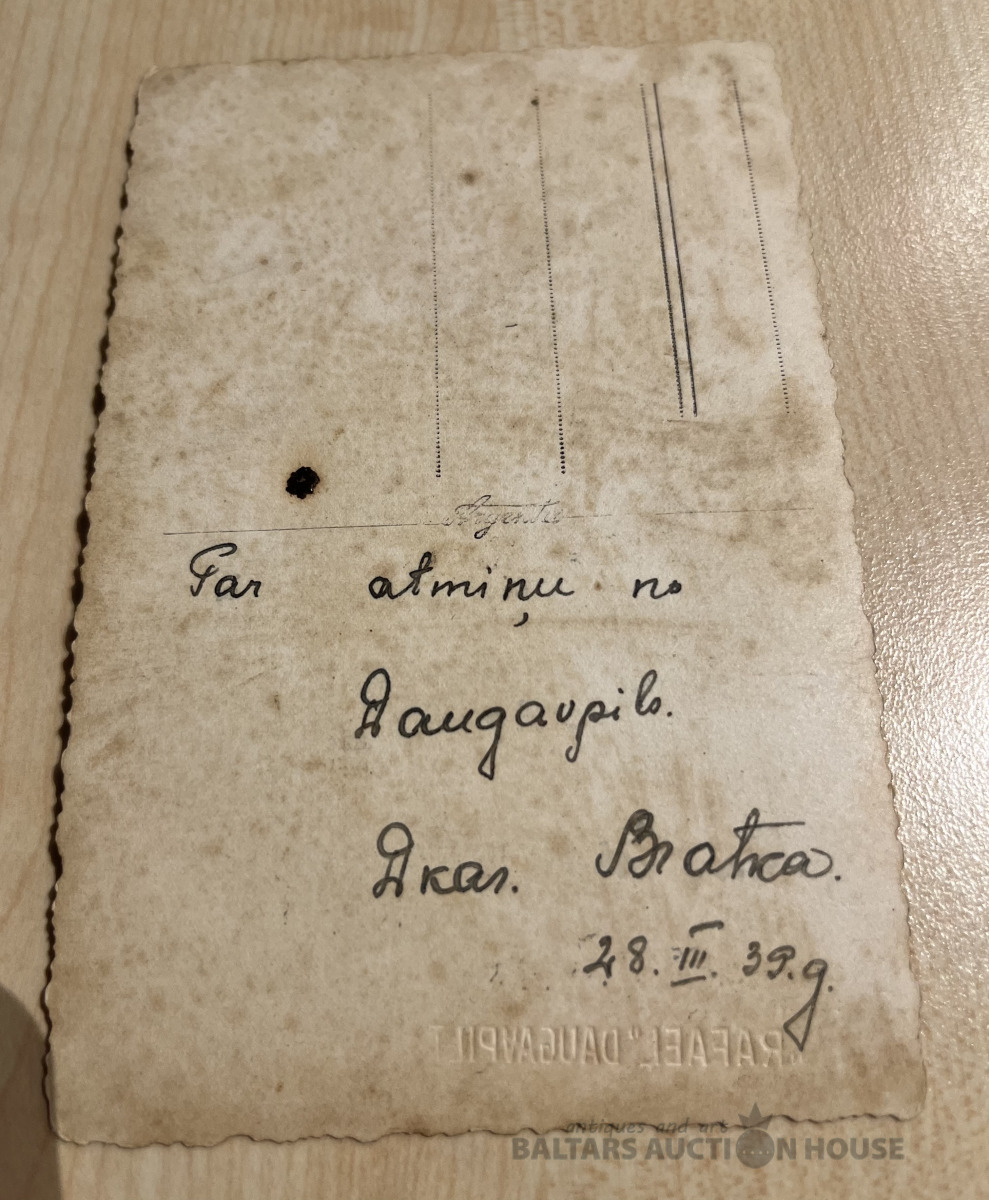 Argenta
Par atmiņu no
Daugavpils.
Dkar. Bratka.
28. III. 39. g.
"RAFAEL" DAUGAVPILĪ
antiques and art
BALTARS AUCTION HOUSE